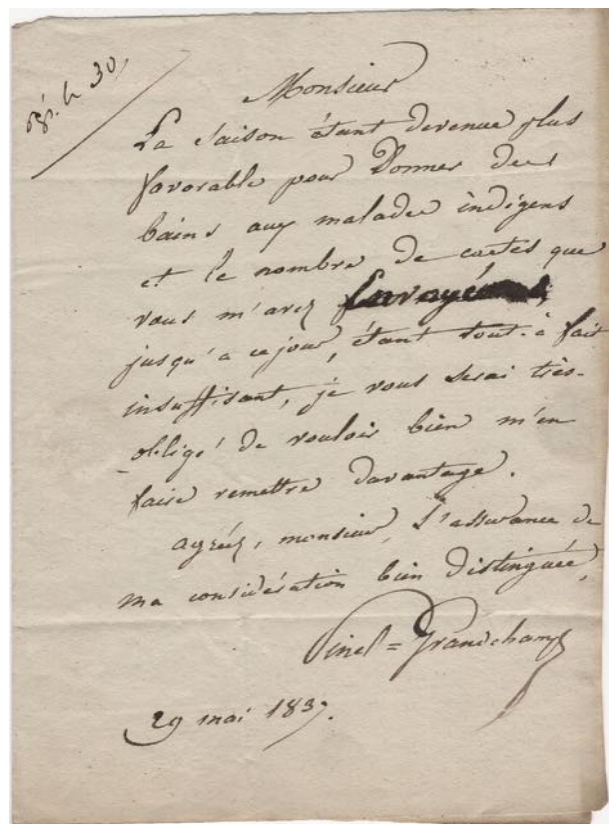 rép. le 30
Monsieur
La saison étant devenue plus
favorable pour Donner des
bains aux malades indigens
et le nombre de cartes que
vous m'avez Envoyé
jusqu'a ce jour, étant tout-à fait
insuffisant, je vous serai très-
obligé de vouloir bien m'en
faire remettre davantage.
agréez, monsieur, L'assurance de
ma considération bien Distinguée,
Pinel=Grandchamp
29 mai 1837.